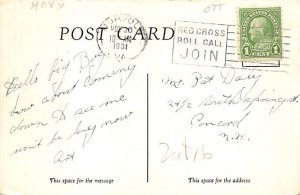 HOXY
OTT
POST CARD
NORFOLK
1931
VA.
RED CROSS
ROLL CALL
JOIN
1 CENT 1
Hello Big Boy
how about coming
down to see me
won't be long now
Art
Mr. Pat Davy
South Spring st
Concord
This space for the message
This space for the address